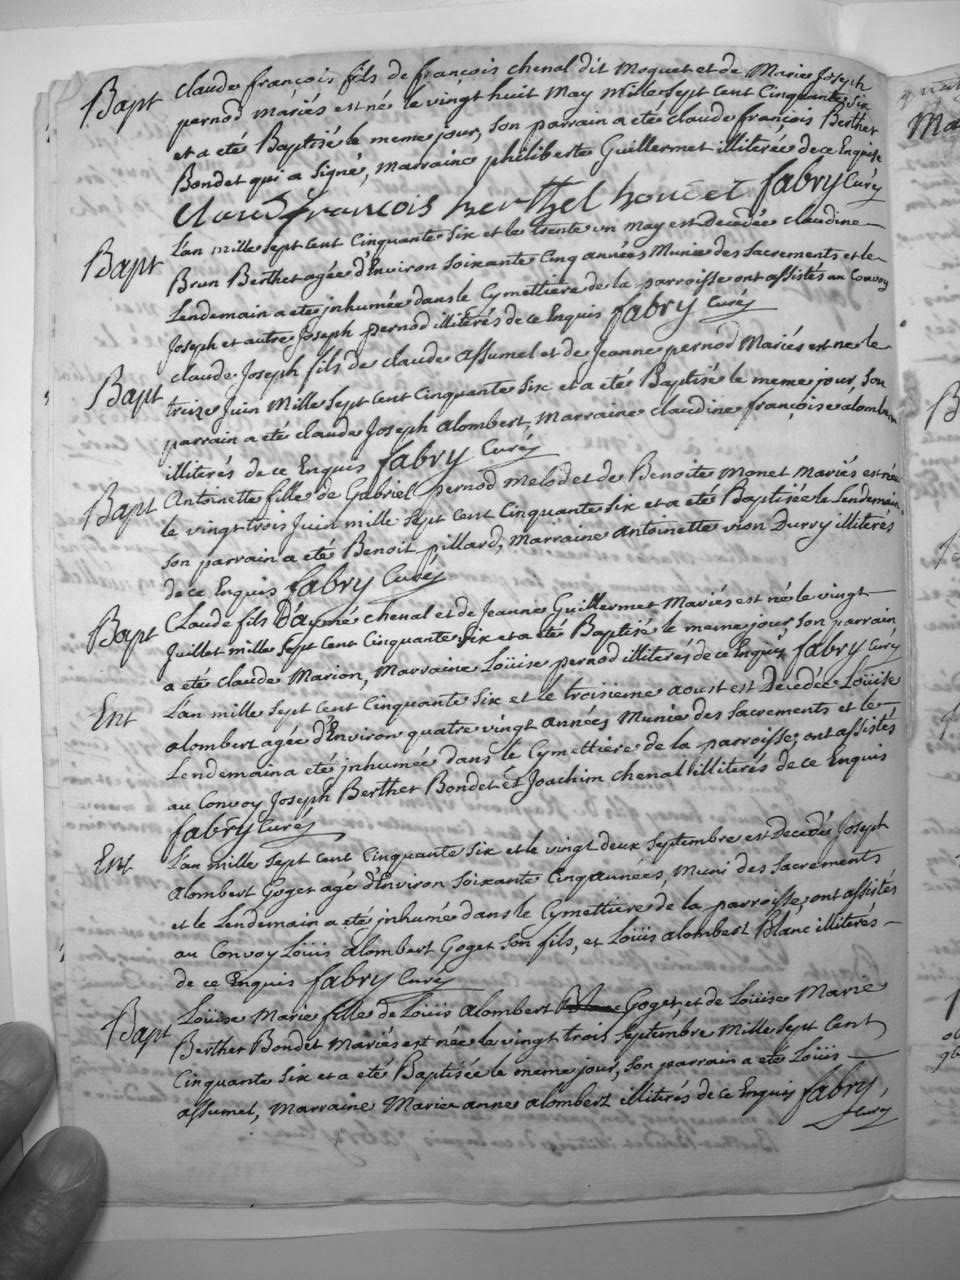 Bapt claude françois fils de françois chenal dit moquet et de Marie Joseph
pernod mariés est né le vingt huit May mille sept cent Cinquante Six
et a été Baptisé le meme jour, Son parrain a été claude françois Berthet
Bondet qui a signé, marraine philiberte Guillermet illiterée de ce Enquise
Claude françois berthet bondet fabry Curé
Bapt L'an mille sept cent Cinquante Six et le trente un May est Decedée claudine
Brun Berthet agée d'Environ soixante Cinq années Munie des Sacrements et le
Lendemain a eté jnhumée dans le Cymettiere de la parroisse ont assistés au Convoy
Joseph et autre Joseph pernod illiterés de ce Enquis fabry Curé
Bapt claude Joseph fils de claude assumel et de Jeanne pernod Mariés est né le
treize Juin mille sept cent Cinquante Six et a eté Baptisé le meme jour, Son
parrain a eté claude Joseph alombert, Marraine claudine françoise alombert
illiterés de ce Enquis fabry Curé
Bapt Antoinette fille de Gabriel pernod melod et de Benoite monet mariés est née
le vingt trois Juin mille sept cent Cinquante Six et a eté Baptisée le Lendemain
son parrain a eté Benoit pillard, Marraine antoinette vion Dury illiterés
de ce Enquis fabry Curé
Bapt Claude fils D'aymé chenal et de Jeanne Guillermet Mariés est né le vingt
Juillet mille sept cent Cinquante Six et a eté Baptisé le meme jour, son parrain
a eté claude Marion, Marraine Loüise pernod illiterés de ce Enquis fabry Curé
Ent L'an mille sept cent Cinquante Six et le troisieme aoust est Decedée Loüise
alombert agée d'Environ quatre vingt années Munie des Sacrements et le
Lendemain a eté jnhumée dans le Cymettiere de la parroisse, ont assistés
au Convoy Joseph Berthet Bondet et Joachim chenal illiterés de ce Enquis
fabry Curé
Ent L'an mille sept cent Cinquante Six et le vingt deux Septembre est Decedé Joseph
alombert Goget agé d'Environ Soixante Cinq années, Muni des Sacrements
et le Lendemain a eté jnhumé dans le Cymettiere de la parroisse, ont assistés
au Convoy Loüis alombert Goget Son fils, et Loüis alombert Blanc illiterés
de ce Enquis fabry Curé
Bapt Loüise Marie fille de Loüis alombert Goget, et de Loüise Marie
Berthet Bondet mariés est née le vingt trois Septembre Mille Sept Cent
Cinquante Six et a eté Baptisée le meme jour, Son parrain a eté Loüis
assumel, Marraine Marie anne alombert illiterés de ce Enquis fabry
Curé